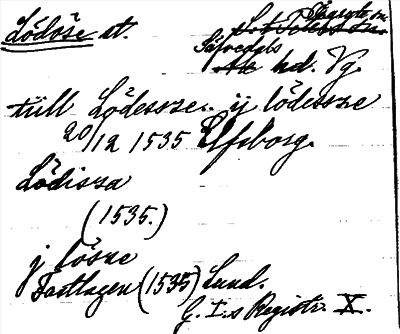 Lödöse st.
Sävedals
hd. Vg.
till Lödessze.. ij lödessze
20/12 1535 Elfsborg.
Lödissa
(1535.)
j lösne
Fastlagen (1535) Lund.
G. I.s Registr. X.